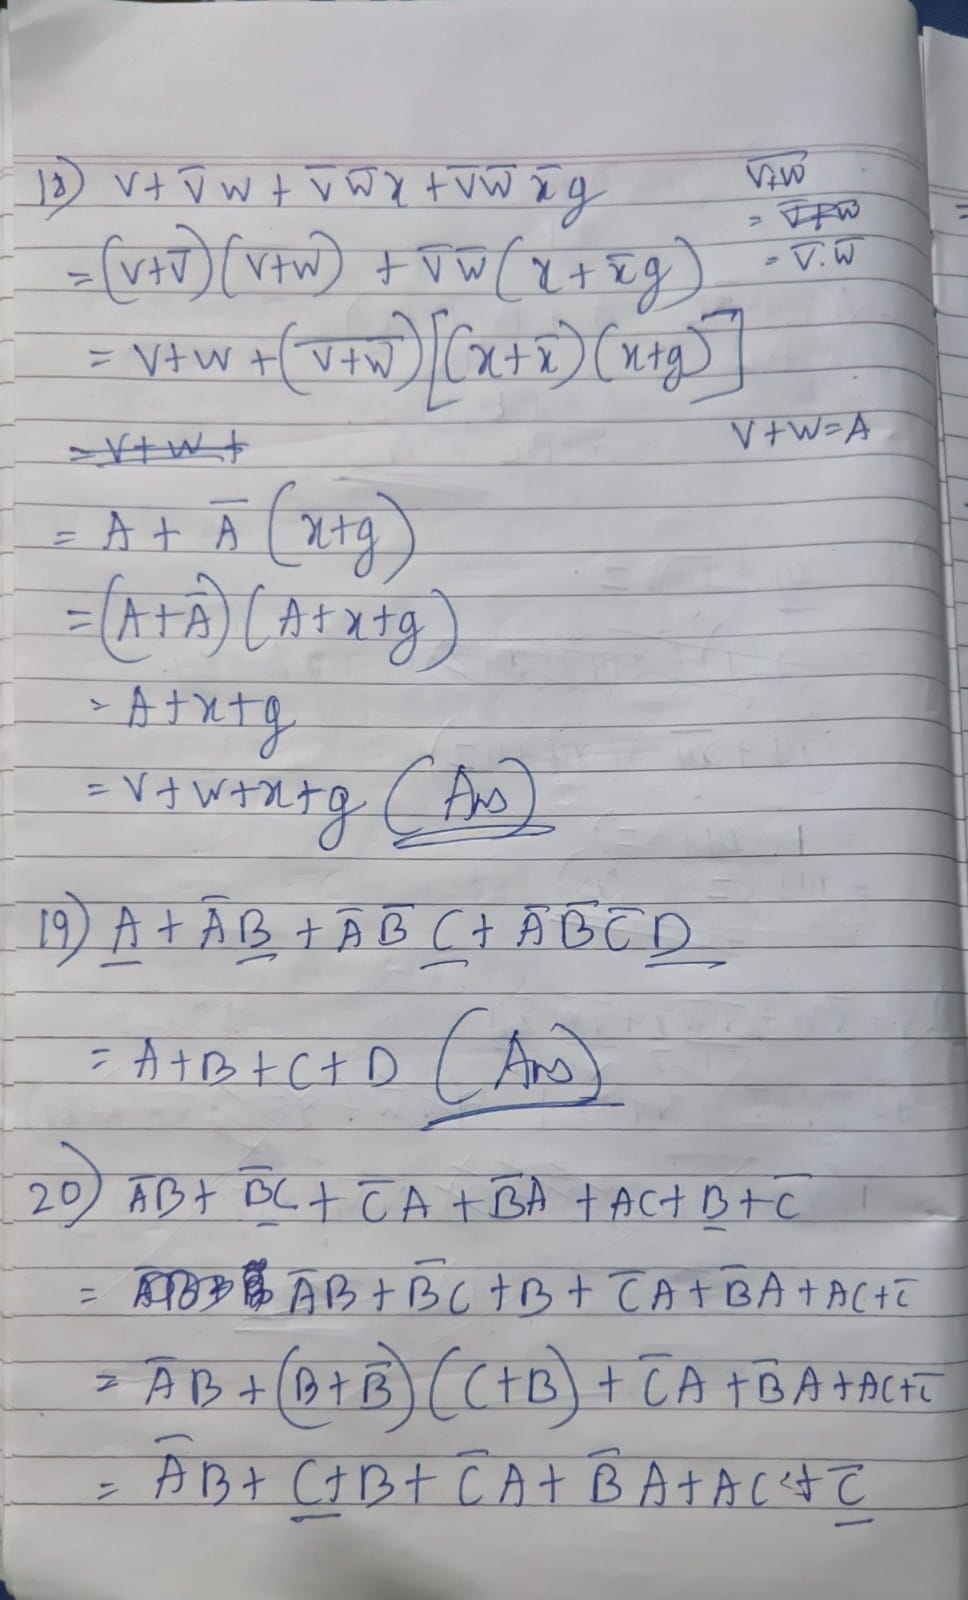 18) V + V̅ W + V̅ W̅ x + V̅ W̅ x̅ y
= (V+V̅) (V+W) + V̅ W̅ (x + x̅ y)
= V+W + (V̅+̅W̅) [(x+x̅) (x+y)]
= V+W+
= A + A̅ (x+y)
= (A+A̅) (A+x+y)
= A+x+y
= V+W+x+y (Ans)
V̅+̅W̅
= V̅+W̅
= V̅.W̅
V+W=A
19) A + A̅ B + A̅ B̅ C + A̅ B̅ C̅ D
= A+B+C+D (Ans)
20) A̅B + B̅C + C̅A + B̅A + AC + B + C̅
= A̅B + B̅C + B + C̅A + B̅A + AC + C̅
= A̅B + (B+B̅) (C+B) + C̅A + B̅A + AC + C̅
= A̅B + C+B + C̅A + B̅A + AC + C̅